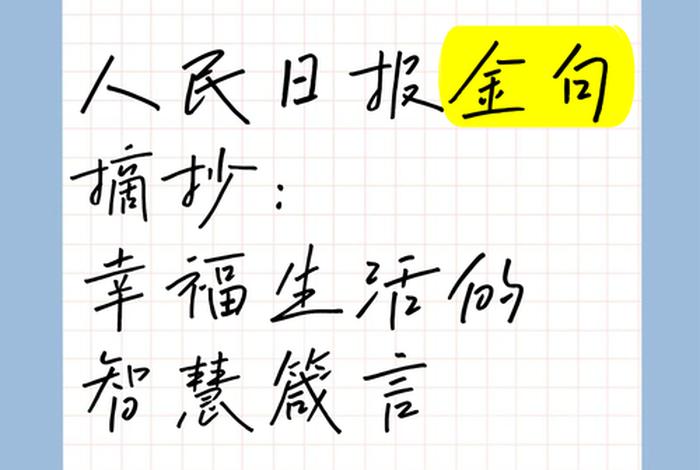 人民日报金句
摘抄:
幸福生活的
智慧箴言